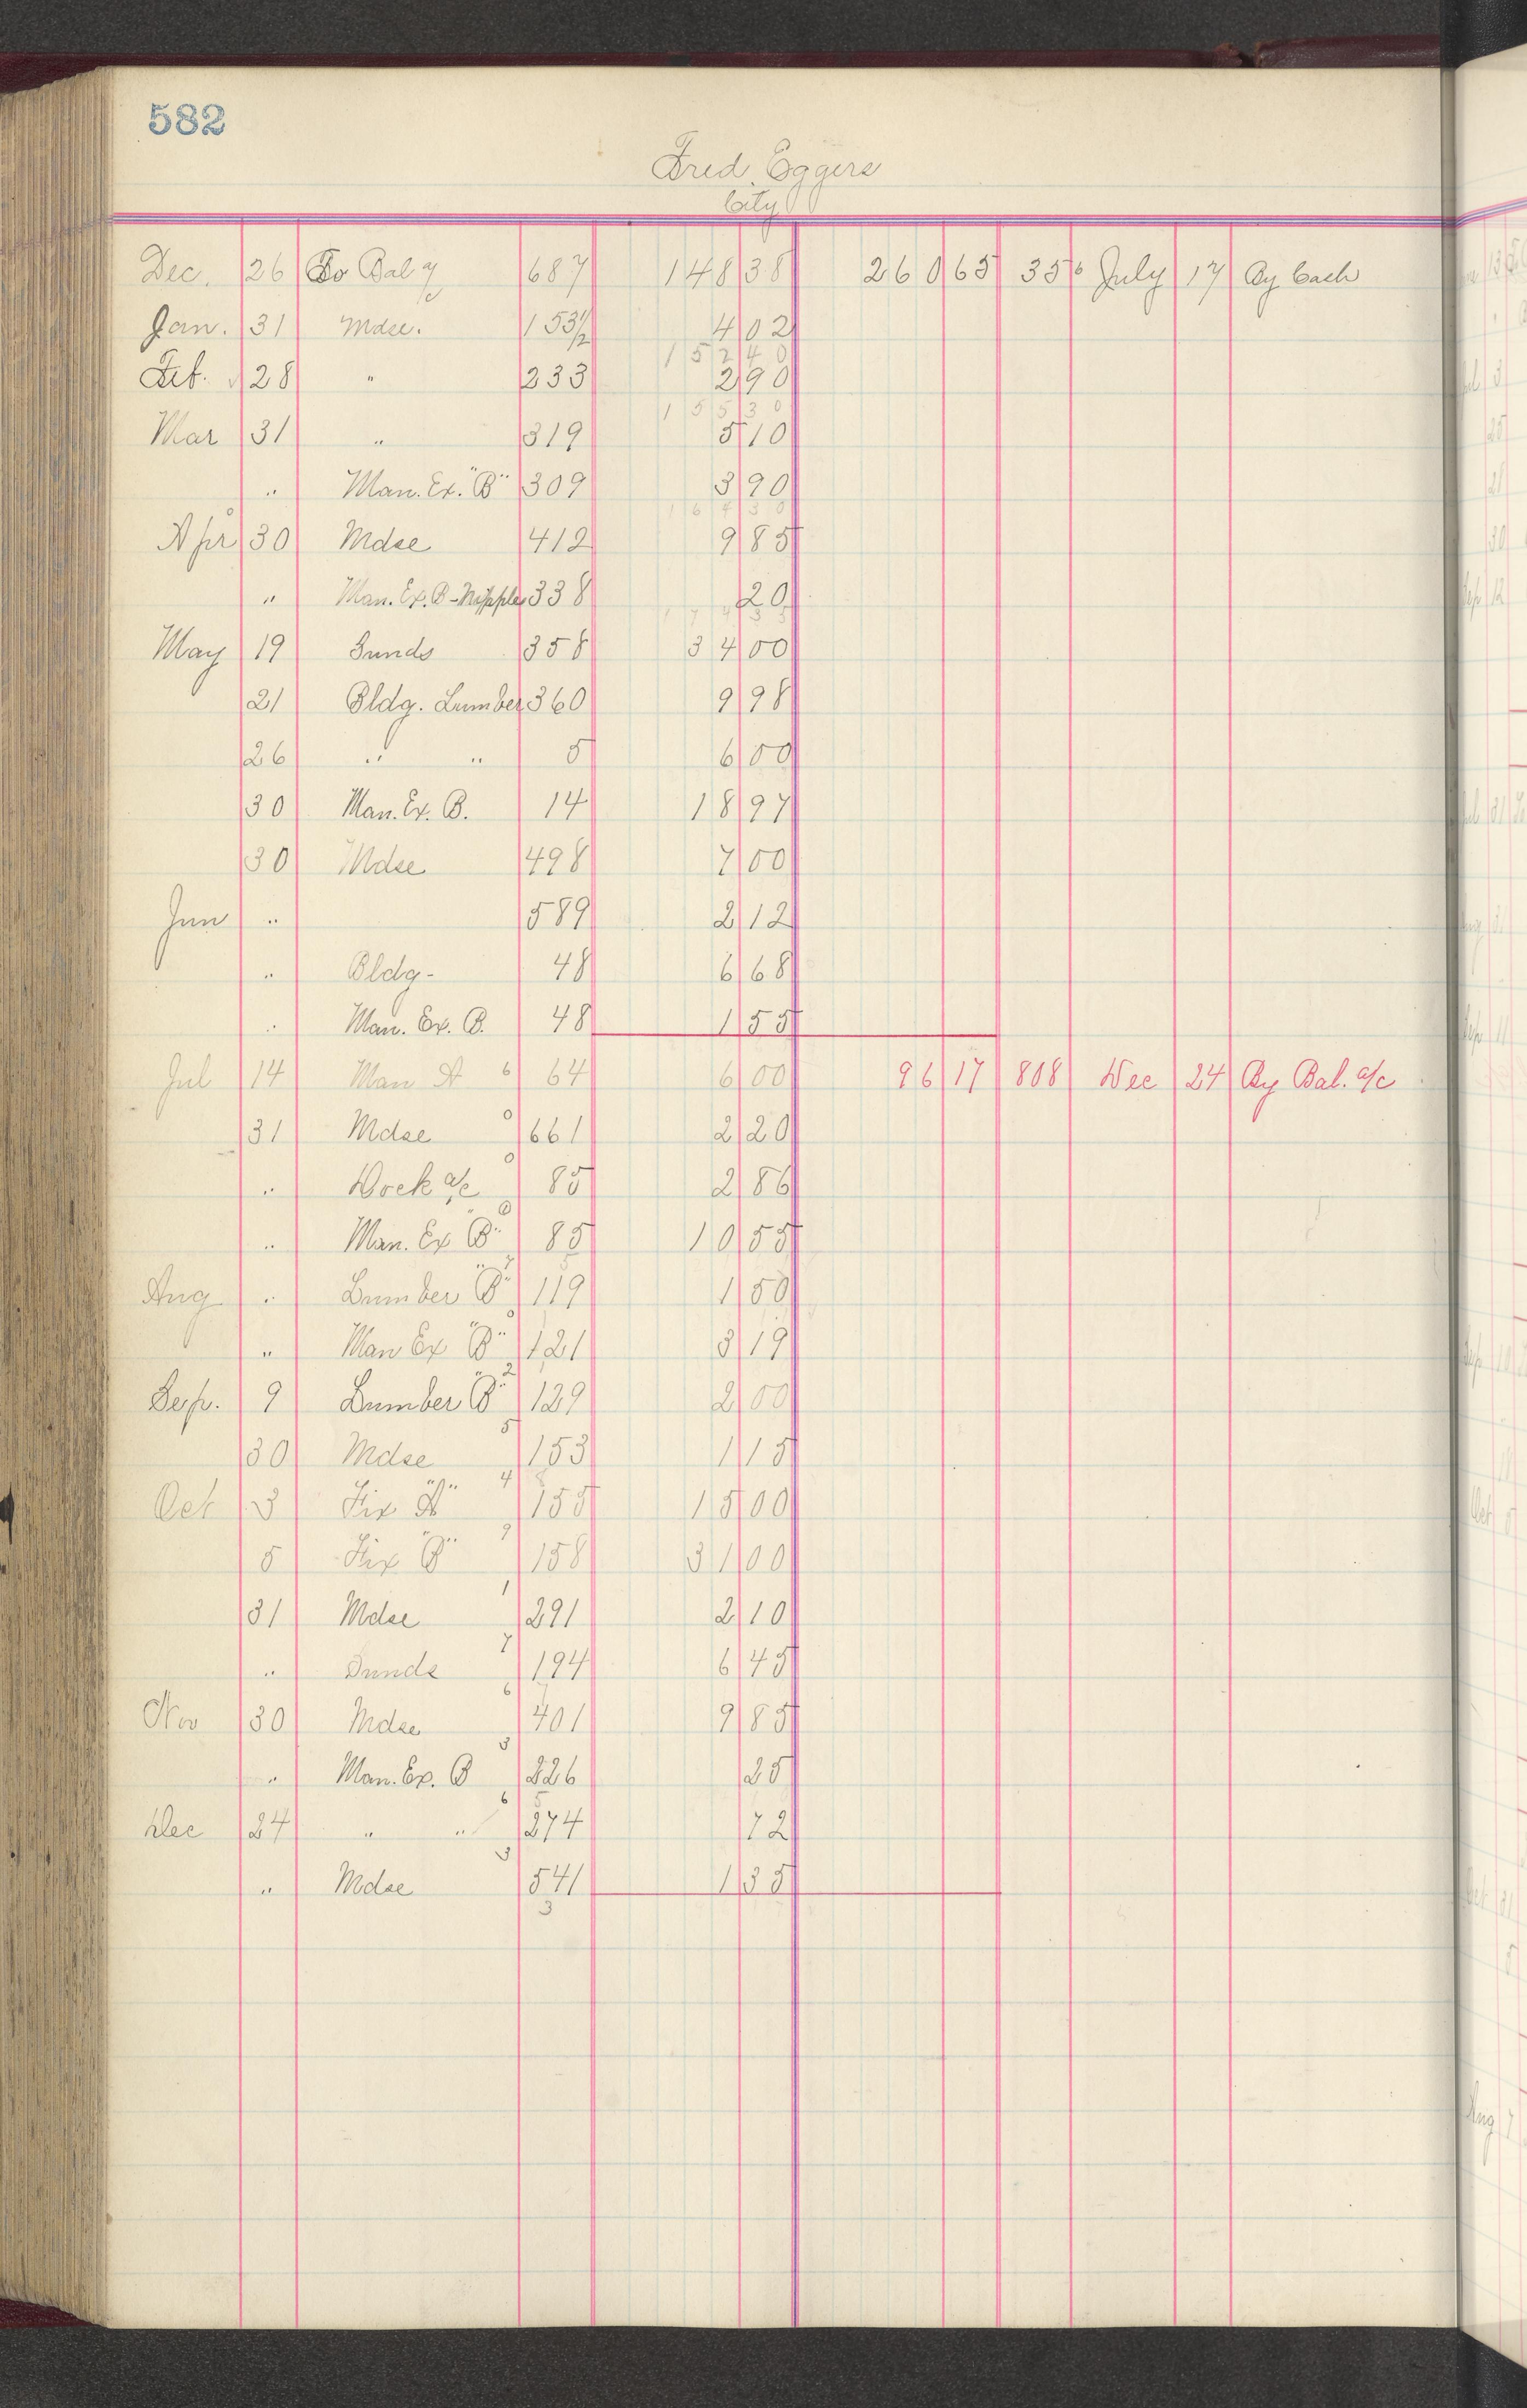 582
Fred Eggers
City
Dec. 26 To Bal a/c 687 148 38 260 65 356 July 17 By Cash
Jan. 31 Mdse. 153 1/2 4 02
152 40
Feb. 28 " 233 2 90
155 30
Mar 31 " 319 5 10
" Man. Ex. "B" 309 3 90
164 30
Apr 30 Mdse 412 9 85
" Man. Ex. B - Nipples 338 20
174 35
May 19 Sunds 358 34 00
21 Bldg. Lumber 360 9 98
26 " " 5 6 00
30 Man. Ex. B. 14 18 97
30 Mdse 498 7 00
Jun " 589 2 12
" Bldg- 48 6 68
" Man. Ex. B. 48 1 55
Jul 14 Man A 6 64 6 00 96 17 808 Dec 24 By Bal. a/c
31 Mdse 0 661 2 20
" Dock a/c 0 85 2 86
" Man. Ex "B" 85 10 55
Aug " Lumber "B" 119 1 50
" Man Ex "B" 121 3 19
Sep. 9 Lumber "B" 2 129 2 00
30 Mdse 5 153 1 15
Oct 3 Fix "A" 4 155 15 00
5 Fix "B" 9 158 31 00
31 Mdse 1 291 2 10
" Sunds 7 194 6 45
Nov 30 Mdse 6 401 9 85
" Man. Ex. B 3 226 25
Dec 24 " " 6 274 72
" Mdse 3 541 1 35
3